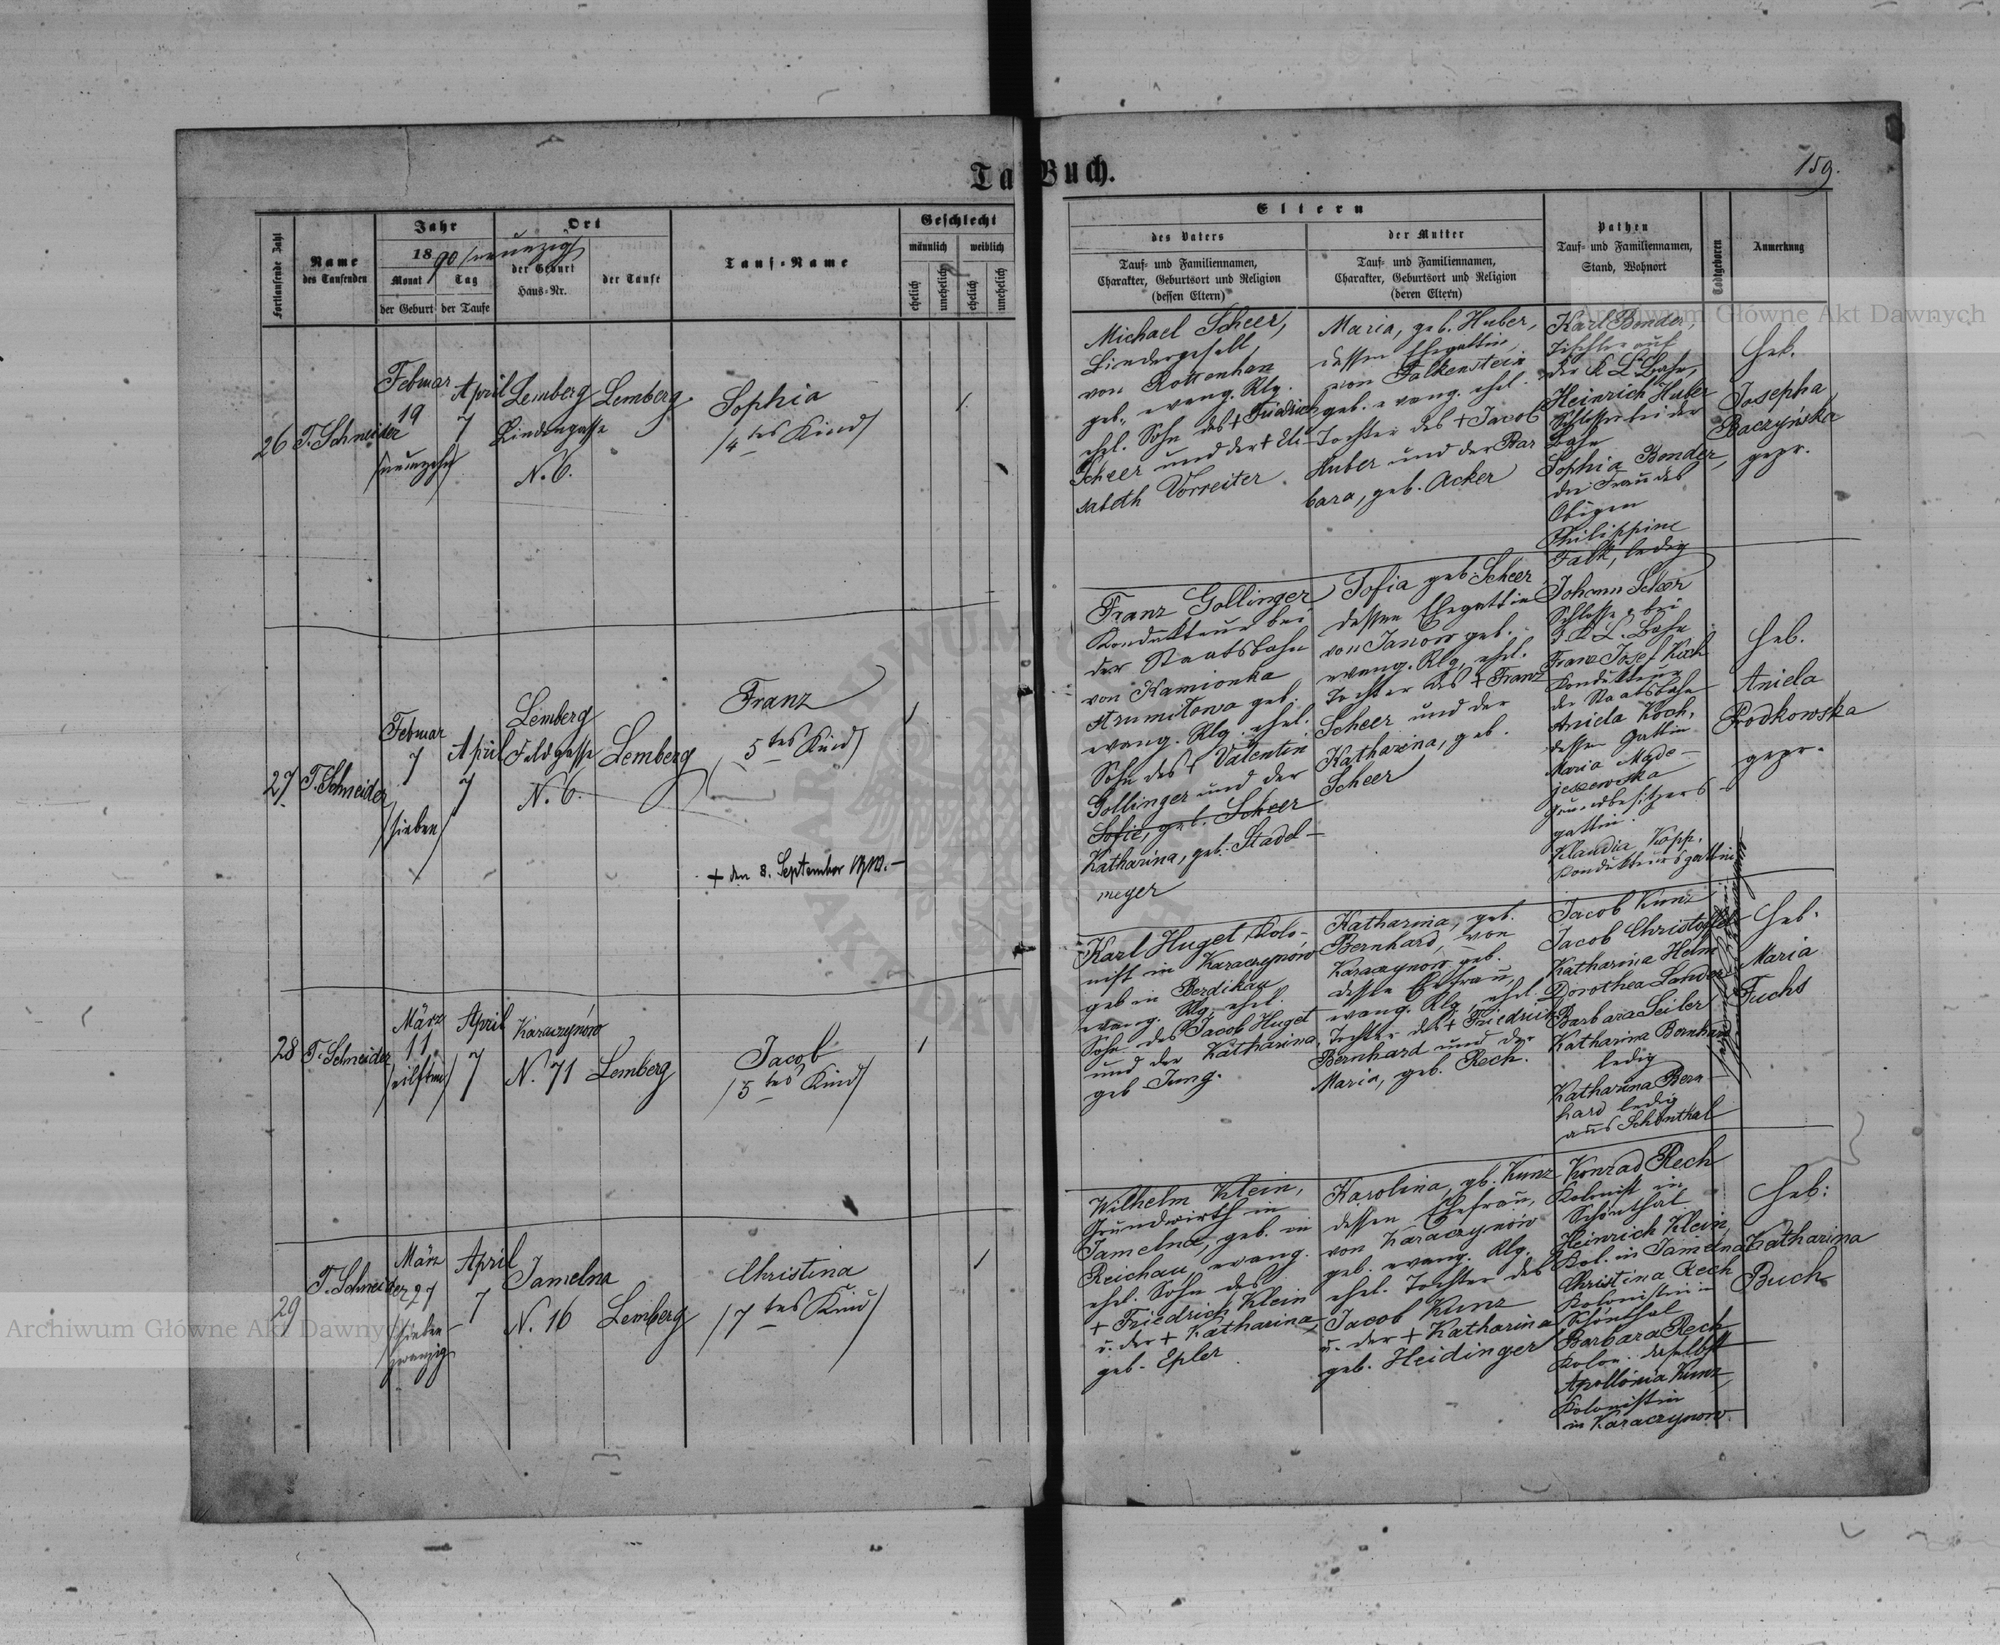 Tauf-Buch.
159.
Fortlaufende Zahl
Name
des Taufenden
Jahr
1890 /neunzig/
Monat
Tag
der Geburt
der Taufe
Ort
der Geburt
Haus-Nr.
der Taufe
Tauf-Name
Geschlecht
männlich
weiblich
ehelich
unehelich
ehelich
unehelich
Eltern
des Vaters
Tauf- und Familiennamen,
Charakter, Geburtsort und Religion
(dessen Eltern)
der Mutter
Tauf- und Familiennamen,
Charakter, Geburtsort und Religion
(deren Eltern)
Pathen
Tauf- und Familiennamen,
Stand, Wohnort
Todtgeboren
Anmerkung
26
T. Schneider
Februar
19
/neunzehn/
April
7
Lemberg
Lindengasse
N. 6.
Lemberg
Sophia
/4tes Kind/
Michael Scheer,
Bindergesell,
von Rottenhan
geb., evang. Rlg.
ehel. Sohn des + Friedrich
Scheer und der + Eli-
sabeth Vorreiter
Maria, geb. Huber,
dessen Ehegattin,
von Falkenstein
geb. evang. ehel.
Tochter des + Jacob
Huber und der Bar
bara, geb. Acker
Karl Bonder,
Tischler auf
der K L Bahn,
Heinrich Huber
Schlosser bei der
Bahn
Sophia Bonder,
die Frau des
Obigen
Philippine
Falk, ledig
Heb.
Josepha
Baczyńska
gepr.
27
T. Schneider
Februar
7
/sieben/
April
7
Lemberg
Feldgasse
N. 6.
Lemberg
Franz
/5tes Kind/
+ den 8. September
Franz Gollinger
Kondukteur bei
der Staatsbahn
von Kamionka
Strumiłowa geb.
evang. Rlg. ehel.
Sohn des + Valentin
Gollinger und der
Sofie, geb. Scheer
Katharina, geb. Stadel-
meyer
Sofia geb. Scheer
dessen Ehegattin
von Janow geb.
evang. Rlg. ehel.
Tochter des + Franz
Scheer und der
Katharina, geb.
Scheer
Johann Scheer
Schlosser bei
d. K L. Bahn
Franz Josef Koch
Kondukteur
der Staatsbahn
Aniela Koch,
dessen Gattin
Maria Made-
jezewska
Grundbesitzers
gattin.
Klaudia Kopp,
Kondukteursgattin
Heb.
Aniela
Rodkowska
gepr.
28
T. Schneider
März
11.
/eilften/
April
7
Karaczynów
N. 71
Lemberg
Jacob
/5tes Kind/
Karl Huget Kolo-
nist in Karaczynów
geb in Berdikau
evang. Rlg. ehel.
Sohn des Jacob Huget
und der Katharina,
geb Jung.
Katharina, geb.
Bernhard, von
Karaczynow geb.
dessen Ehefrau,
evang. Rlg. ehel.
Tochter des + Friedrich
Bernhard und der
Maria, geb. Rech.
Jacob Kunz
Jacob Christoffel
Katharina Helm
Dorothea Lander
Barbara Seiler
Katharina Bernhard
ledig
Katharina Bern
hard ledig
aus Schönthal
Heb.
Maria
Fuchs
29
T. Schneider
März
27
/sieben
zwanzig
April
7
Jamelna
N. 16
Lemberg
Christina
/7tes Kind/
Wilhelm Klein,
Grundwirth in
Jamelna, geb. in
Reichau, evang.
ehel. Sohn des
+ Friedrich Klein
u. der + Katharina,
geb. Epler
Karolina, gb. Kunz
dessen Ehefrau,
von Karaczynów
geb. evang. Rlg.
ehel. Tochter des
Jacob Kunz
u. der + Katharina
geb. Heidinger
Konrad Rech
Kolonist in
Schönthal
Heinrich Klein,
Kol. in Jamelna
Christina Rech
Kolonistin in
Schönthal
Barbara Rech
Kolon. daselbst
Apollonia Kunz,
Kolonistin
in Karaczynow.
Heb:
Katharina
Buch
Archiwum Główne Akt Dawnych
Archiwum Główne Akt Dawnych